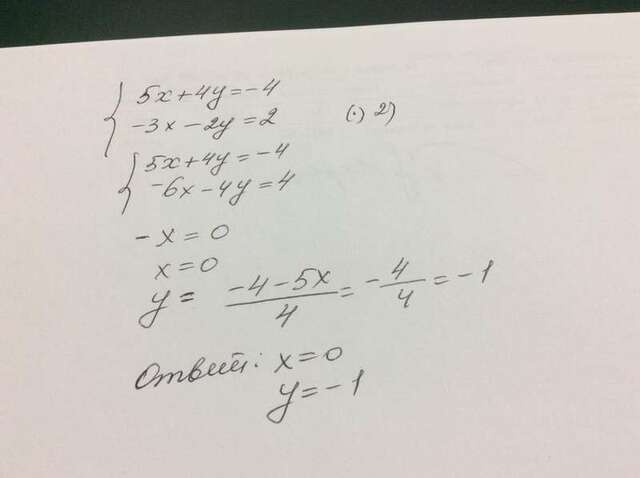 5x+4y=-4
-3x-2y=2 (·) 2)
5x+4y=-4
-6x-4y=4
-x=0
x=0
y= -4-5x/4 = -4/4 = -1
Ответ: x=0
y=-1